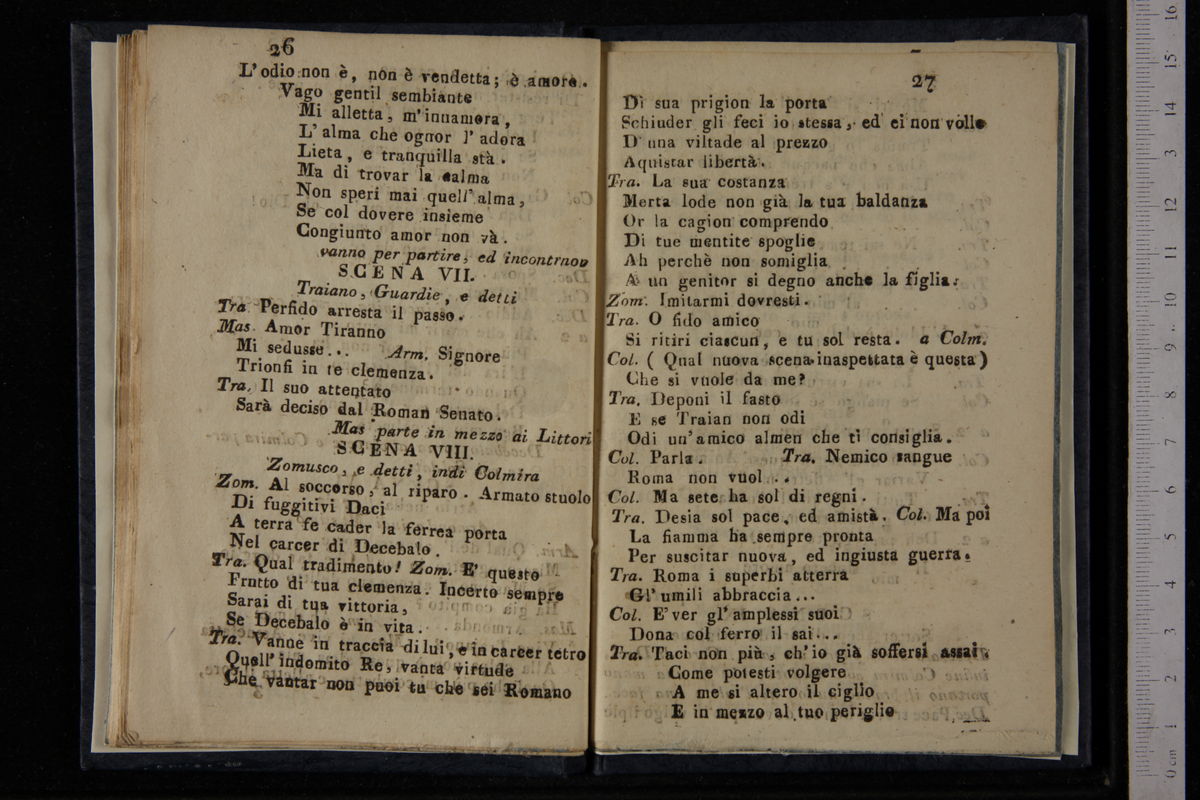 26
L'odio non è, non è vendetta; è amore.
Vago gentil sembiante
Mi alletta, m'innamora,
L'alma che ognor l'adora
Lieta, e tranquilla stà.
Ma di trovar la calma
Non speri mai quell'alma,
Se col dovere insieme
Congiunto amor non và.
vanno per partire, ed incontrnon
SCENA VII.
Traiano, Guardie, e detti
Tra. Perfido arresta il passo.
Mas. Amor Tiranno
Mi sedusse... Arm. Signore
Trionfi in te clemenza.
Tra. Il suo attentato
Sarà deciso dal Roman Senato.
Mas parte in mezzo ai Littori
SCENA VIII.
Zomusco, e detti, indi Colmira
Zom. Al soccorso, al riparo. Armato stuolo
Di fuggitivi Daci
A terra fe cader la ferrea porta
Nel carcer di Decebalo.
Tra. Qual tradimento! Zom. E' questo
Frutto di tua clemenza. Incerto sempre
Sarai di tua vittoria,
Se Decebalo è in vita.
Tra. Vanne in traccia di lui, e in carcer tetro
Quell'indomito Re, vanta virtude
Che vantar non puoi tu che sei Romano
27
Di sua prigion la porta
Schiuder gli feci io stessa, ed ei non volle
D'una viltade al prezzo
Aquistar libertà.
Tra. La sua costanza
Merta lode non già la tua baldanza
Or la cagion comprendo
Di tue mentite spoglie
Ah perchè non somiglia
A un genitor si degno anche la figlia.
Zom. Imitarmi dovresti.
Tra. O fido amico
Si ritiri ciascun, e tu sol resta. a Colm.
Col. ( Qual nuova scena inaspettata è questa )
Che si vuole da me?
Tra. Deponi il fasto
E se Traian non odi
Odi un'amico almen che ti consiglia.
Col. Parla. Tra. Nemico sangue
Roma non vuol ..
Col. Ma sete ha sol di regni.
Tra. Desia sol pace, ed amistà. Col. Ma poi
La fiamma ha sempre pronta
Per suscitar nuova, ed ingiusta guerra.
Tra. Roma i superbi atterra
Gl'umili abbraccia...
Col. E'ver gl'amplessi suoi
Dona col ferro il sai...
Tra. Taci non più, ch'io già soffersi assai.
Come potesti volgere
A me si altero il ciglio
E in mezzo al tuo periglio